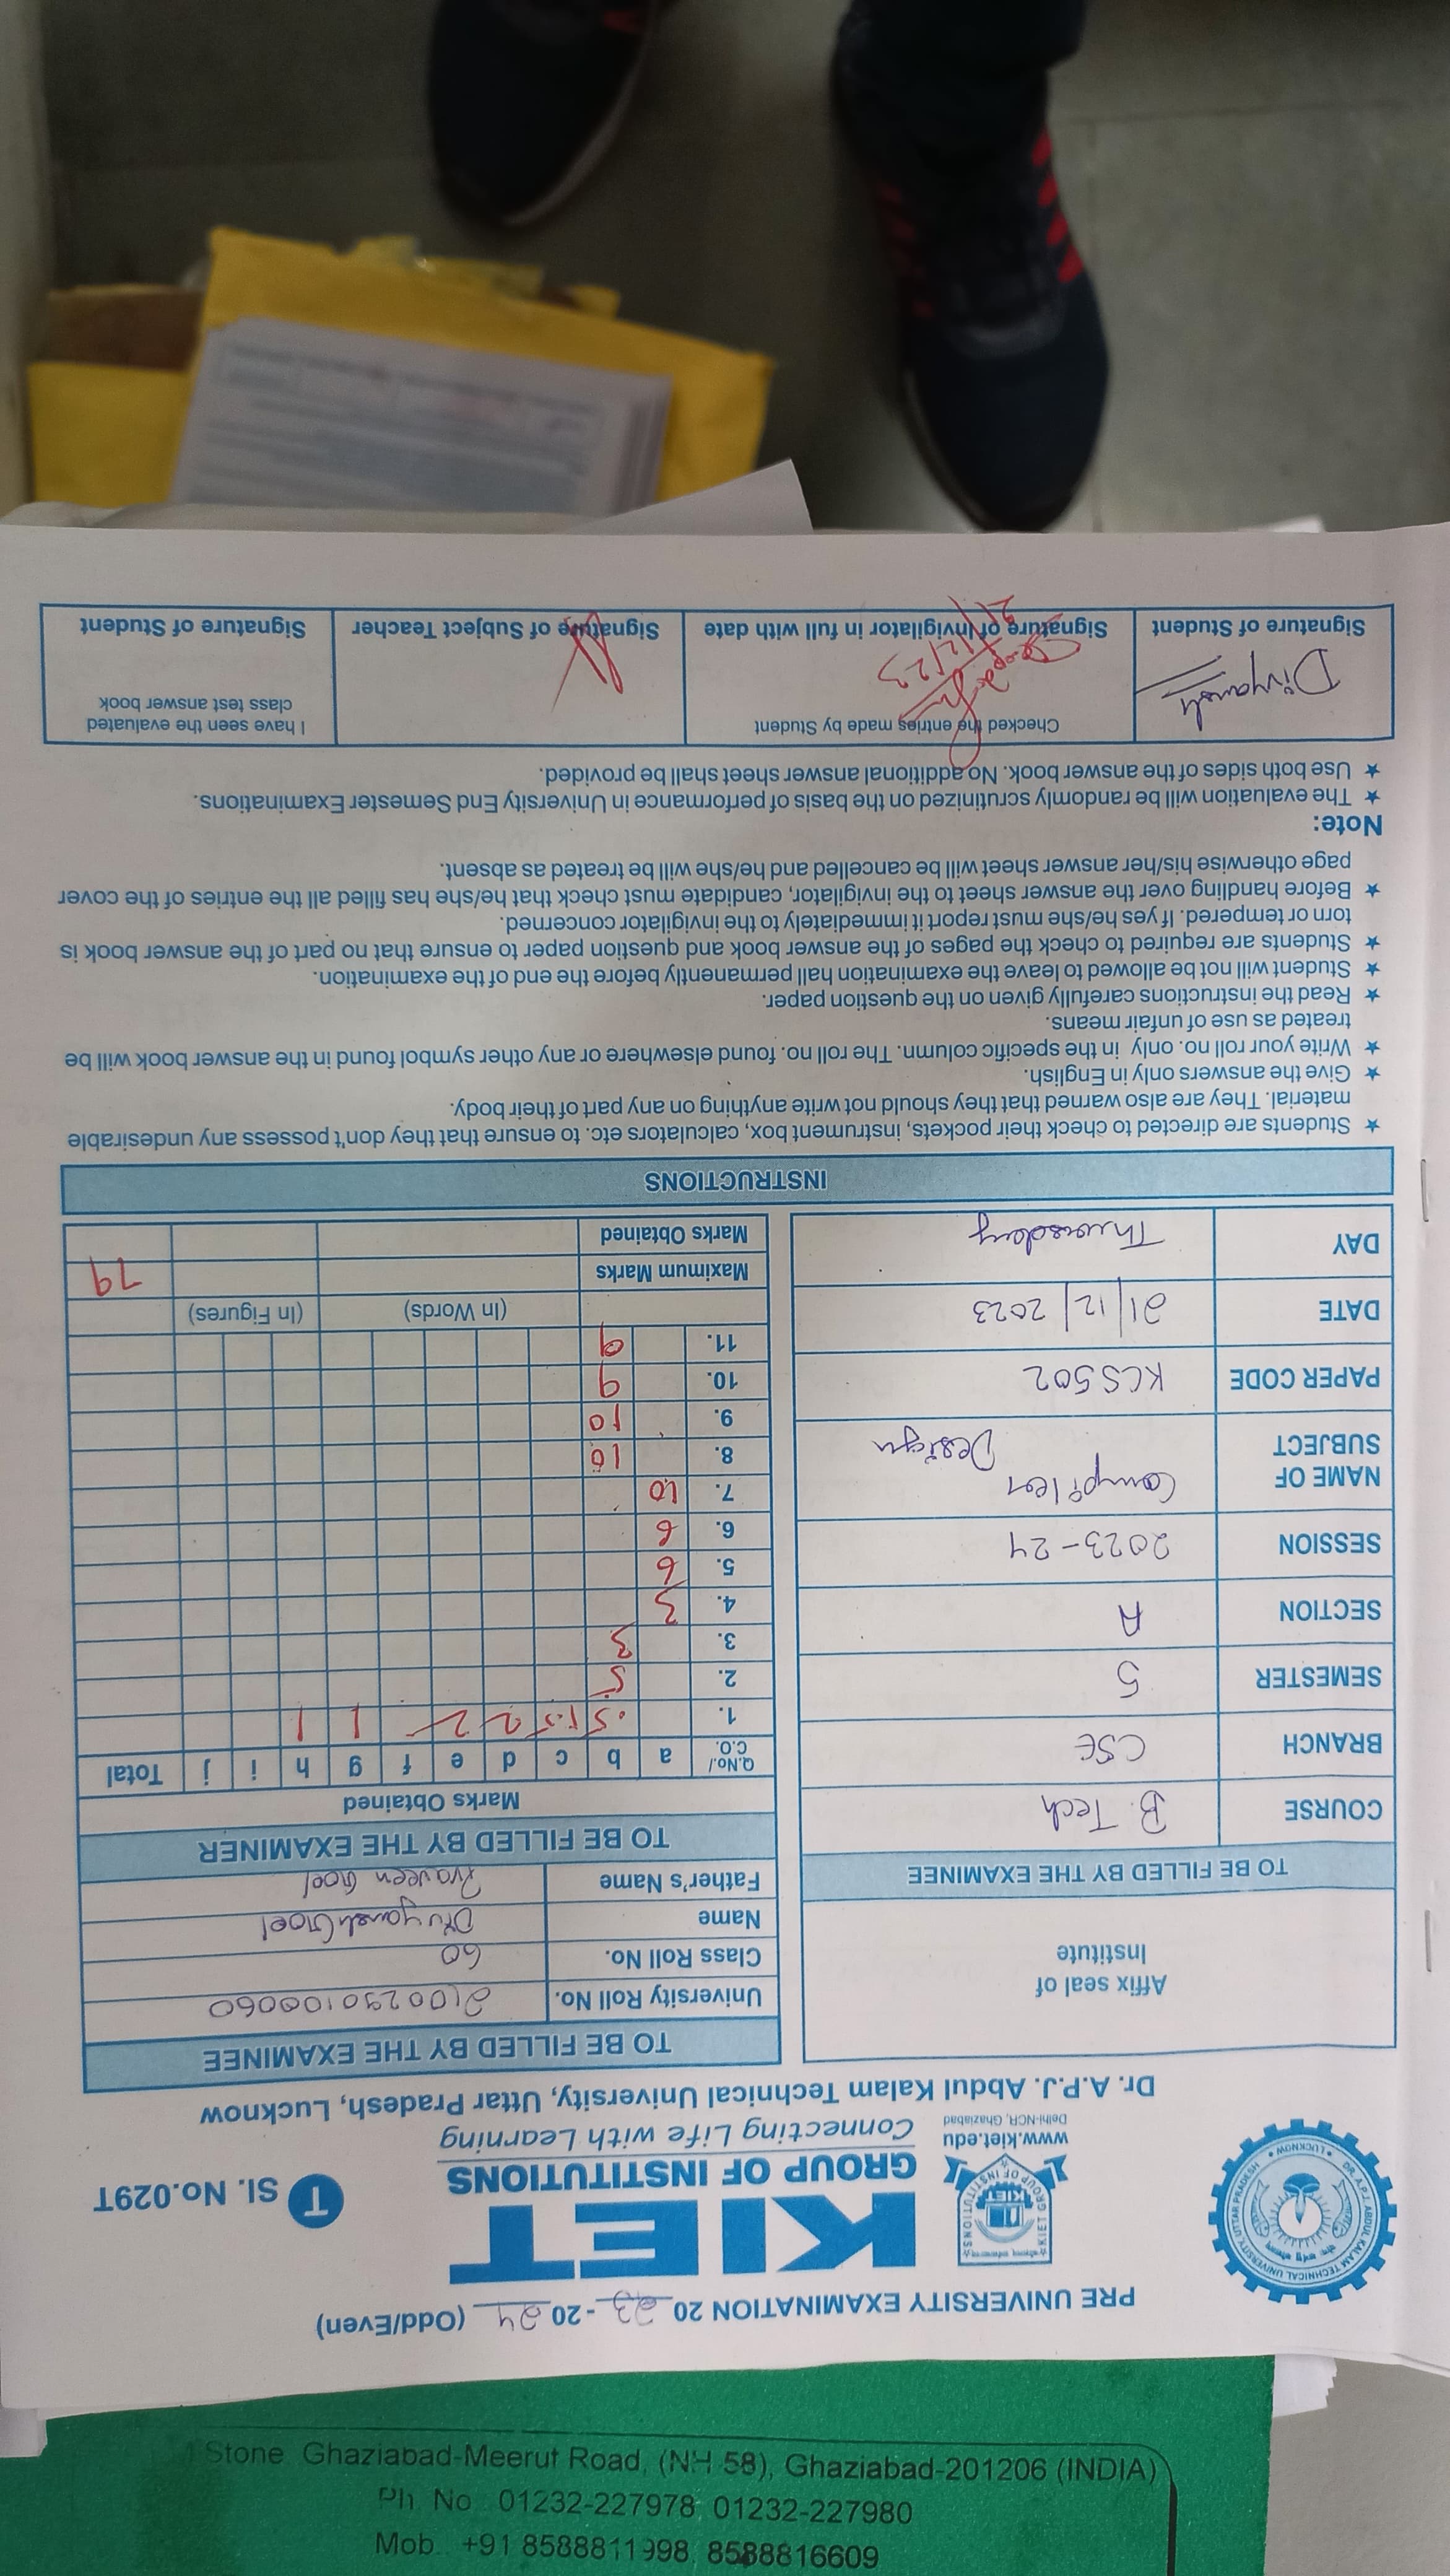 Mob. +91 8588811998, 8588816609
Ph. No. 01232-227978, 01232-227980
Stone, Ghaziabad-Meerut Road, (NH-58), Ghaziabad-201206 (INDIA)
PRE UNIVERSITY EXAMINATION 20 23 - 20 24 (Odd/Even)
DR. A.P.J. ABDUL KALAM TECHNICAL UNIVERSITY, UTTAR PRADESH
• LUCKNOW •
KIET GROUP OF INSTITUTIONS
KIET
www.kiet.edu
Delhi-NCR, Ghaziabad
KIET
GROUP OF INSTITUTIONS
Connecting Life with Learning
T Sl. No.029T
Dr. A.P.J. Abdul Kalam Technical University, Uttar Pradesh, Lucknow
Affix seal of
Institute
TO BE FILLED BY THE EXAMINEE
COURSE B. Tech
BRANCH CSE
SEMESTER 5
SECTION A
SESSION 2023-24
NAME OF SUBJECT Compiler Design
PAPER CODE KCS502
DATE 21/12/2023
DAY Thursday
TO BE FILLED BY THE EXAMINEE
University Roll No. 2100290100060
Class Roll No. 60
Name Divyansh Goel
Father's Name Praveen Goel
TO BE FILLED BY THE EXAMINER
Marks Obtained
Q.No./C.O. a b c d e f g h i j Total
1. .5 1.5 2 2 - 1 1
2. 5
3. 3
4. 3
5. 6
6. 6
7. 10
8. 10
9. 10
10. 9
11. 9
(In Words) (In Figures)
Maximum Marks 79
Marks Obtained
INSTRUCTIONS
★ Students are directed to check their pockets, instrument box, calculators etc. to ensure that they don't possess any undesirable
material. They are also warned that they should not write anything on any part of their body.
★ Give the answers only in English.
★ Write your roll no. only in the specific column. The roll no. found elsewhere or any other symbol found in the answer book will be
treated as use of unfair means.
★ Read the instructions carefully given on the question paper.
★ Student will not be allowed to leave the examination hall permanently before the end of the examination.
★ Students are required to check the pages of the answer book and question paper to ensure that no part of the answer book is
torn or tempered. If yes he/she must report it immediately to the invigilator concerned.
★ Before handling over the answer sheet to the invigilator, candidate must check that he/she has filled all the entries of the cover
page otherwise his/her answer sheet will be cancelled and he/she will be treated as absent.
Note:
★ The evaluation will be randomly scrutinized on the basis of performance in University End Semester Examinations.
★ Use both sides of the answer book. No additional answer sheet shall be provided.
Divyansh
Signature of Student
Checked the entries made by Student
21/12/23
Signature of Invigilator in full with date
Signature of Subject Teacher
I have seen the evaluated
class test answer book
Signature of Student